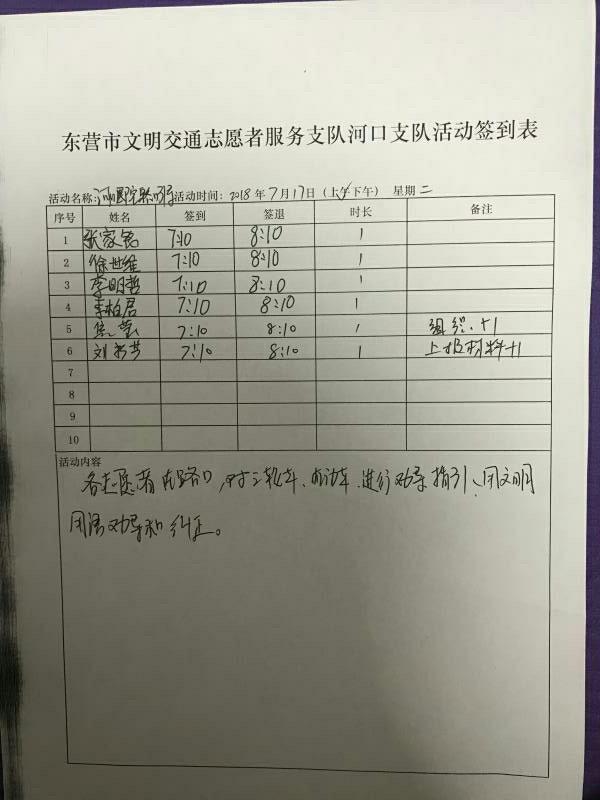 东营市文明交通志愿者服务支队河口支队活动签到表
活动名称: 活动时间: 2018年7月17日(上午下午) 星期二
序号 姓名 签到 签退 时长 备注
1 张家铭 7:10 8:10 1
2 徐世维 7:10 8:10 1
3 李明哲 7:10 8:10 1
4 李柏君 7:10 8:10 1
5 莹 7:10 8:10 1 组织+1
6 刘 芳 7:10 8:10 1 上报材料+1
7
8
9
10
活动内容
各志愿者在路口,对二轮车、 车进行劝导指引、用文明
用语劝导和纠正。